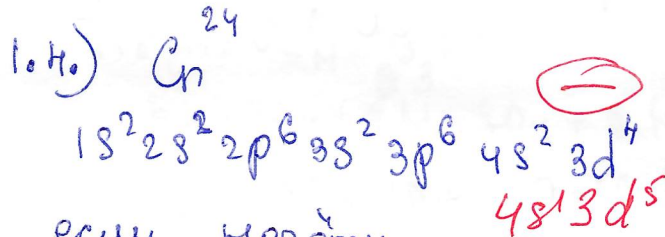 1.4.) Cr²⁴
1s² 2s² 2p⁶ 3s² 3p⁶ 4s² 3d⁴
4s¹3d⁵
если